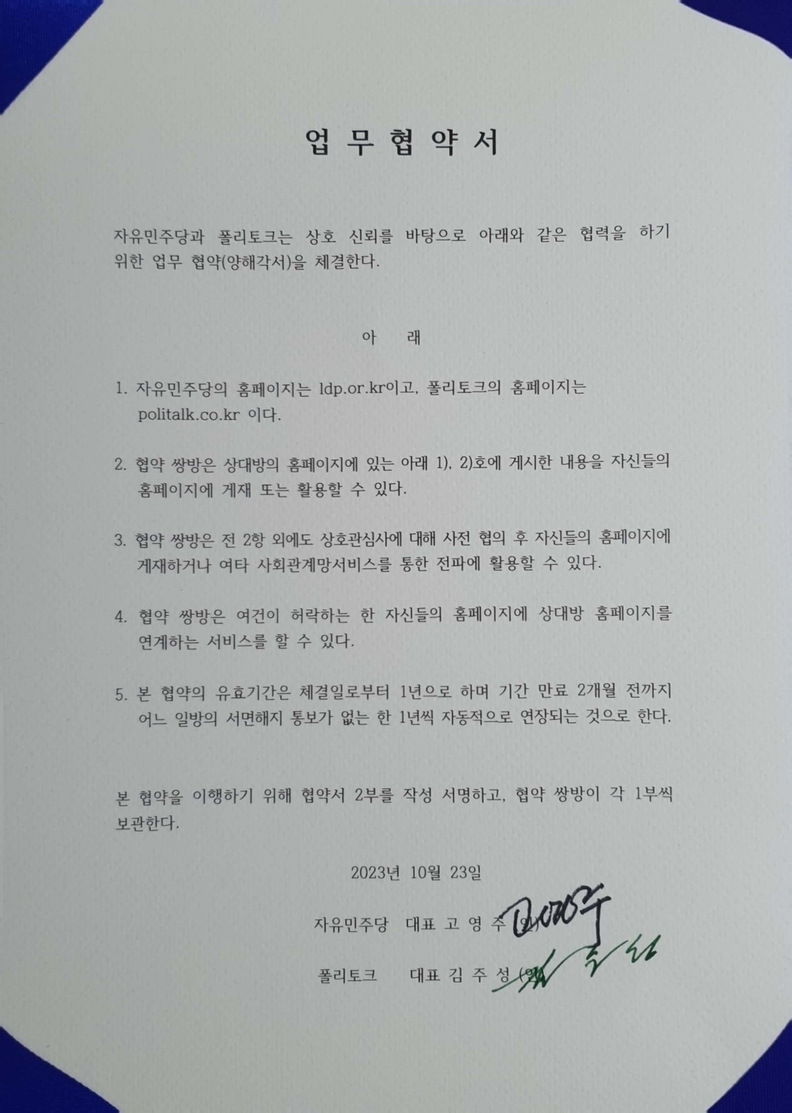 업 무 협 약 서
자유민주당과 폴리토크는 상호 신뢰를 바탕으로 아래와 같은 협력을 하기
위한 업무 협약(양해각서)을 체결한다.
아 래
1. 자유민주당의 홈페이지는 ldp.or.kr이고, 폴리토크의 홈페이지는
politalk.co.kr 이다.
2. 협약 쌍방은 상대방의 홈페이지에 있는 아래 1), 2)호에 게시한 내용을 자신들의
홈페이지에 게재 또는 활용할 수 있다.
3. 협약 쌍방은 전 2항 외에도 상호관심사에 대해 사전 협의 후 자신들의 홈페이지에
게재하거나 여타 사회관계망서비스를 통한 전파에 활용할 수 있다.
4. 협약 쌍방은 여건이 허락하는 한 자신들의 홈페이지에 상대방 홈페이지를
연계하는 서비스를 할 수 있다.
5. 본 협약의 유효기간은 체결일로부터 1년으로 하며 기간 만료 2개월 전까지
어느 일방의 서면해지 통보가 없는 한 1년씩 자동적으로 연장되는 것으로 한다.
본 협약을 이행하기 위해 협약서 2부를 작성 서명하고, 협약 쌍방이 각 1부씩
보관한다.
2023년 10월 23일
자유민주당 대표 고 영 주 (인)
폴리토크 대표 김 주 성